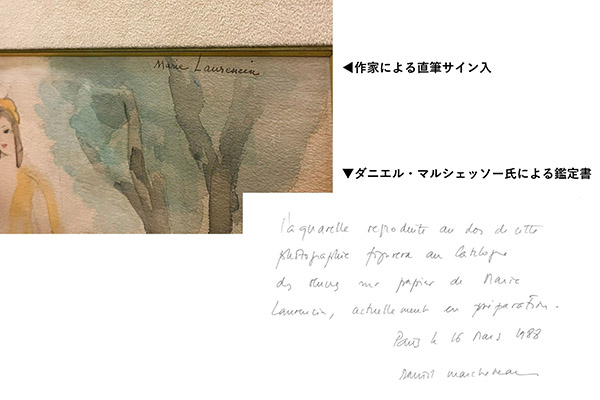 Marie Laurencin
◀作家による直筆サイン入
▼ダニエル・マルシェッソー氏による鑑定書
l'aquarelle reproduite au dos de cette
photographie figurera au Catalogue
des œuvres sur papier de Marie
Laurencin, actuellement en préparation.
Paris le 16 Mars 1988